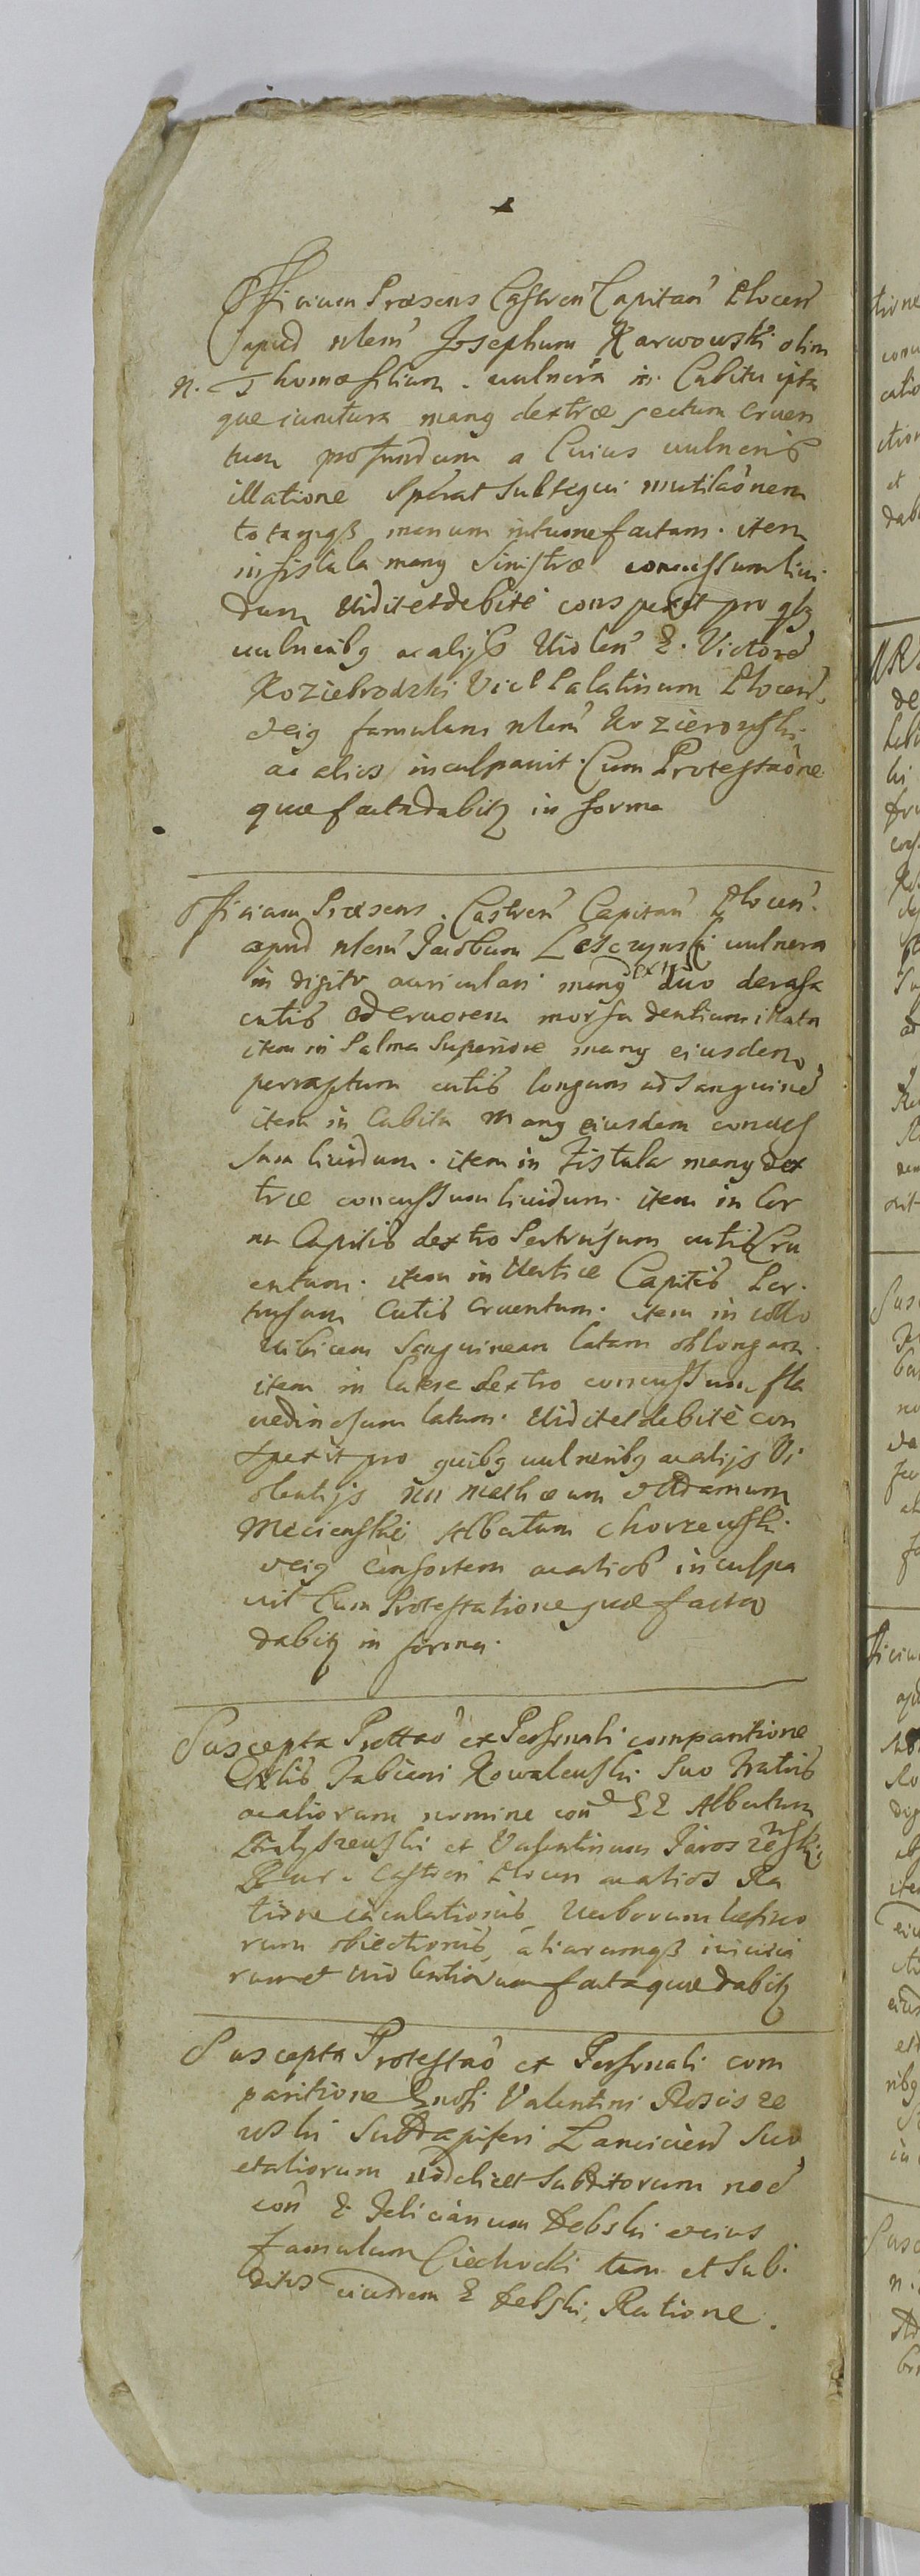 Officium Præsens Castren Capitan Plocen
apud nlem Josephum Karwowski olim
n. Thomæ filium. uulnera in Cubitu ipsa
que iunctura many dextræ sectum cruen
tum profundum a Cuius uulneris
illatione Sperat subsequi mutilaõnem
totamqß manum intumefactam. item
in fistula many Sinistræ concussum liui
dum Uidit et debite conspexit pro qbz
uulneribg ac alijs Uiolen E. Victore
Koziebrodzki Vice Palatinum Plocen,
eeig famulum nlem Kozierowski
ac alios inculpauit. Cum Protestaõne
quæ facta dabitz in forma
Officium Præsens. Castren Capitan Plocen.
apud nlem Jacobum Lesczynski uulnera
in digito auriculari many dex duo derasa
cutis ad cruorem morsu dentium illata
item in Palma Superiore many eiusdem
perraptum cutis longum ad sanguine
item in Cubitu many eiusdem concus
sum liuidum. item in Fistula many dex
træ concussum liuidum. item in Cor
nu Capitis dextro Pertrusum cutis Cru
entum. item in Uertice Capitis Per
trusum Cutis cruentum. item in collo
uibicem Sanguineam latam oblongam
item in latere dextro concussum fla
uedinosum latum. Uidit et debite con
spexit pro quibg uulneribg ac alijs Vi
olentijs nn Mathæum et Adamum
Mecienski Albertum Chorzewski
eeig Consortem ac alios inculpa
uit Cum Protestatione quæ facta
dabitz in forma.
Suscepta Prottaõ ex Personali comparitione
Nlis Fabiani Kowalewski Suo Fratris
ac aliorum nomine con EE Albertum
et Valentinum
Bur. Castren Plocen ac alios Ra
tione iaculationis Uerborum læsiuo
rum obiectionis, aliarumqß iniuria
rum et uiolentiarum facta quæ dabitz
Suscepta Protestaõ ex Personali com
paritione Gnosi Valentini Roscisze
wski Subdapiferi Lancicien Suo
et aliorum uidelicet Subditorum noe
con E Felicianum Debski eeius
famulum Ciechocki tum et Sub
ditos eiusdem E Debski, Ratione.